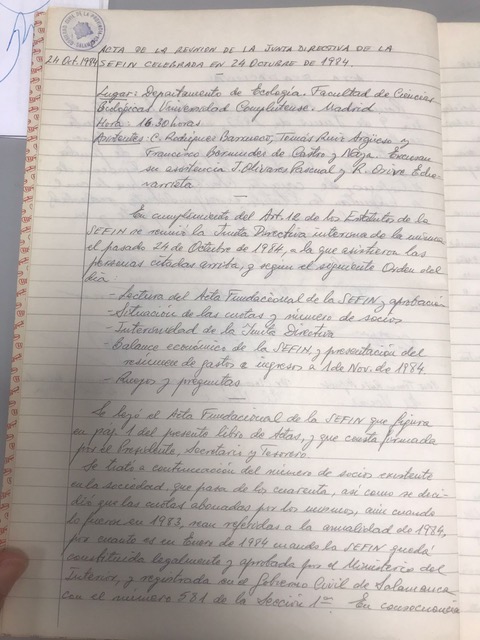 ACTA DE LA REUNION DE LA JUNTA DIRECTIVA DE LA
24 Oct. 1984 SEFIN CELEBRADA EN 24 OCTUBRE DE 1984.
Lugar: Departamento de Ecología. Facultad de Ciencias
Biológicas. Universidad Complutense. Madrid
Hora: 16.30 horas
Asistentes: C. Rodríguez Barrueco, Tomás Ruiz Argüeso y
Francisco Bermúdez de Castro y Mtnez. Excusan
su asistencia J. Olivares Pascual y R. Orive Eche-
varrieta
En cumplimiento del Art. 12 de los Estatutos de la
SEFIN se reunió la Junta Directiva interina de la misma
el pasado 24 de Octubre de 1984, a la que asistieron las
personas citadas arriba, y según el siguiente Orden del
día
- Lectura del Acta Fundacional de la SEFIN y aprobación
- Situación de las cuotas y número de socios
- Interinidad de la Junta Directiva
- Balance económico de la SEFIN, y presentación del
resúmen de gastos e ingresos a 1 de Nov. de 1984
- Ruegos y preguntas
Se leyó el Acta Fundacional de la SEFIN que figura
en pag. 1 del presente libro de Actas, y que consta firmada
por el Presidente, Secretario y Tesorero.
Se trató a continuación del número de socios existente
en la sociedad, que pasa de los cuarenta, así como se deci-
dió que las cuotas abonadas por los mismos, aún cuando
lo fueran en 1983, sean referidas a la anualidad de 1984,
por cuanto es en Enero de 1984 cuando la SEFIN quedó
constituida legalmente y aprobada por el Ministerio del
Interior, y registrada en el Gobierno Civil de Salamanca
con el número 581 de la Sección 1ª. En consecuencia